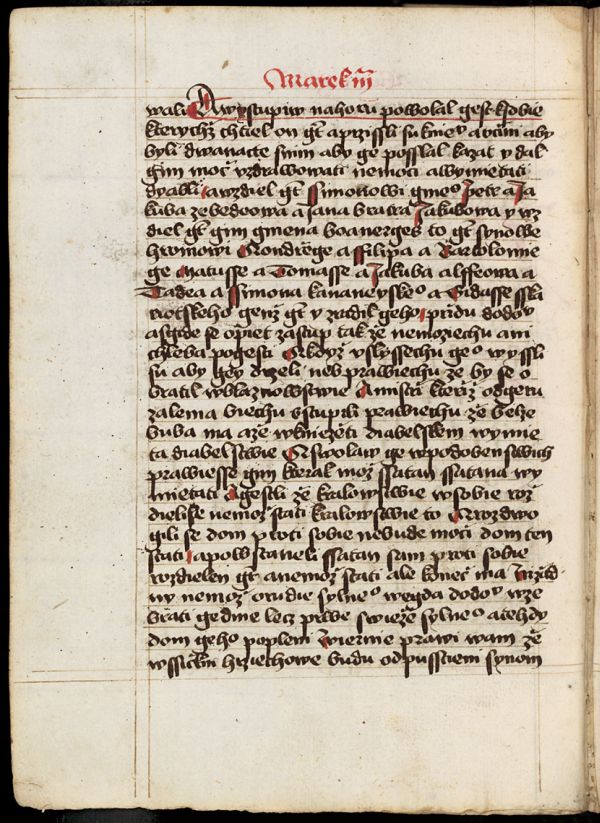 Marek iii
wali A wystupiw nahoru powolal gest ksobie
kterychz chtiel on gt aprzissli su kniemo avcini aby
byli dwanacte snim aby ge posslal kazat y dal
gim moc vzdrawowati nemoci awymietati
dyabli a wzdiel gt Simonowi gmeo Petr a Ja
kuba zebedeowa a Jana bratra Jakubowa y wz
diel gt gim gmena boanerges to gt synowe
hromowi A ondrzege a ffilipa a Bartolomie
ge a Matusse a Tomasse a Jakuba alffeowa a
Tadea a Simona kananeyskeo a Gidasse sska
riotskeho genz gt y zradil geho A przidu dodov
asgide se opiet zastup tak ze nemoziechu ani
chleba pogesti A kdyz vslyssechu geo wyssli
su aby gey drzeli neb prawiechu ze by se o
bratil wblaznowstwie A mistri kteriz odgeru
zalema biechu vstupili prawiechu ze belze
buba ma a ze wkniezeti diabelskem wymie
ta diabelstwie A swolaw ge wpodobenstwich
prawiesse gim kterak moz ssatan ssatana wy
mietati A gestli ze kralowstwie wsobie roz
dielise nemoz stati kralowstwie to A rozdwo
gili se dom proti sobie nebude moci dom ten
stati a powstaneli ssatan sam proti sobie
rozdielen gt anemoz stati ale konec ma Izad
ny nemoz orudie sylneo wegda dodoo wze
brati gedine lecz prwe swieze sylneo atehdy
dom geho popleni Zwiernie prawi wam ze
wssickni hrziechowe budu odpusstieni synom